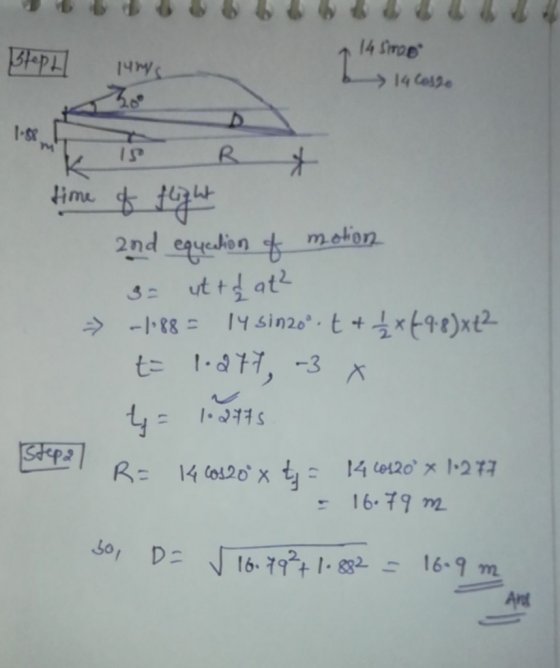 Step1
14 m/s
20°
14 sin20°
14 cos20
1.88 m
D
15°
R
time of flight
2nd equation of motion
s = ut + 1/2 at²
⇒ -1.88 = 14 sin20° · t + 1/2 × (-9.8) × t²
t = 1.277, -3 ×
t_f = 1.277s
Step2
R = 14 cos20° × t_f = 14 cos20° × 1.277
= 16.79 m
so, D = √16.79² + 1.88² = 16.9 m
Ans